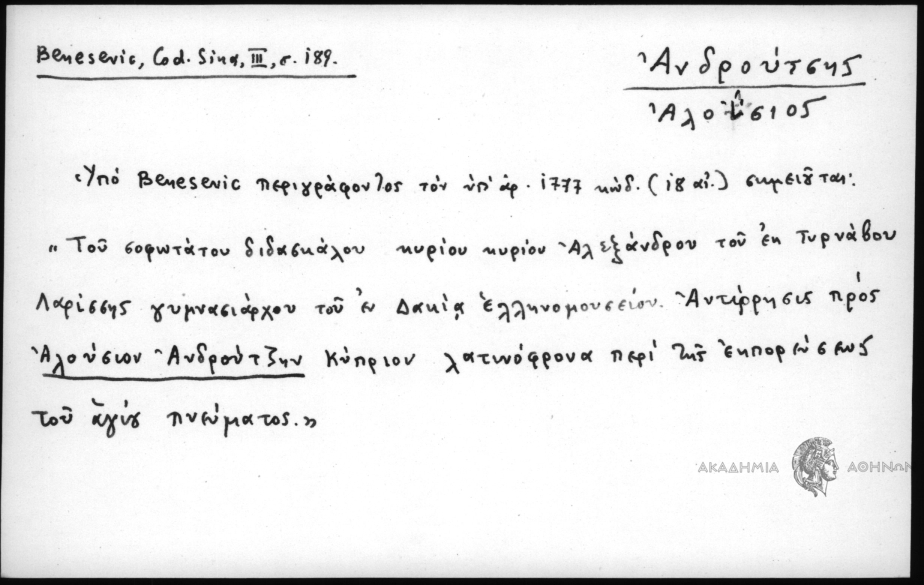 Benesevic, Cod. Sina, III, σ. 189.
Ἀνδρούτσης
Ἀλοΐσιος
Ὑπό Benesevic περιγράφοντος τόν ὑπ' ἀρ. 1777 κώδ. (18 αἰ.) σημειοῦται:
"Τοῦ σοφωτάτου διδασκάλου κυρίου κυρίου Ἀλεξάνδρου τοῦ ἐκ Τυρνάβου
Λαρίσσης γυμνασιάρχου τοῦ ἐν Δακίᾳ ἑλληνομουσείου. Ἀντίρρησις πρός
Ἀλούσιον Ἀνδρούτζην Κύπριον λατινόφρονα περί τῆς ἐκπορεύσεως
τοῦ ἁγίου πνεύματος.»
ΑΚΑΔΗΜΙΑ ΑΘΗΝΩΝ